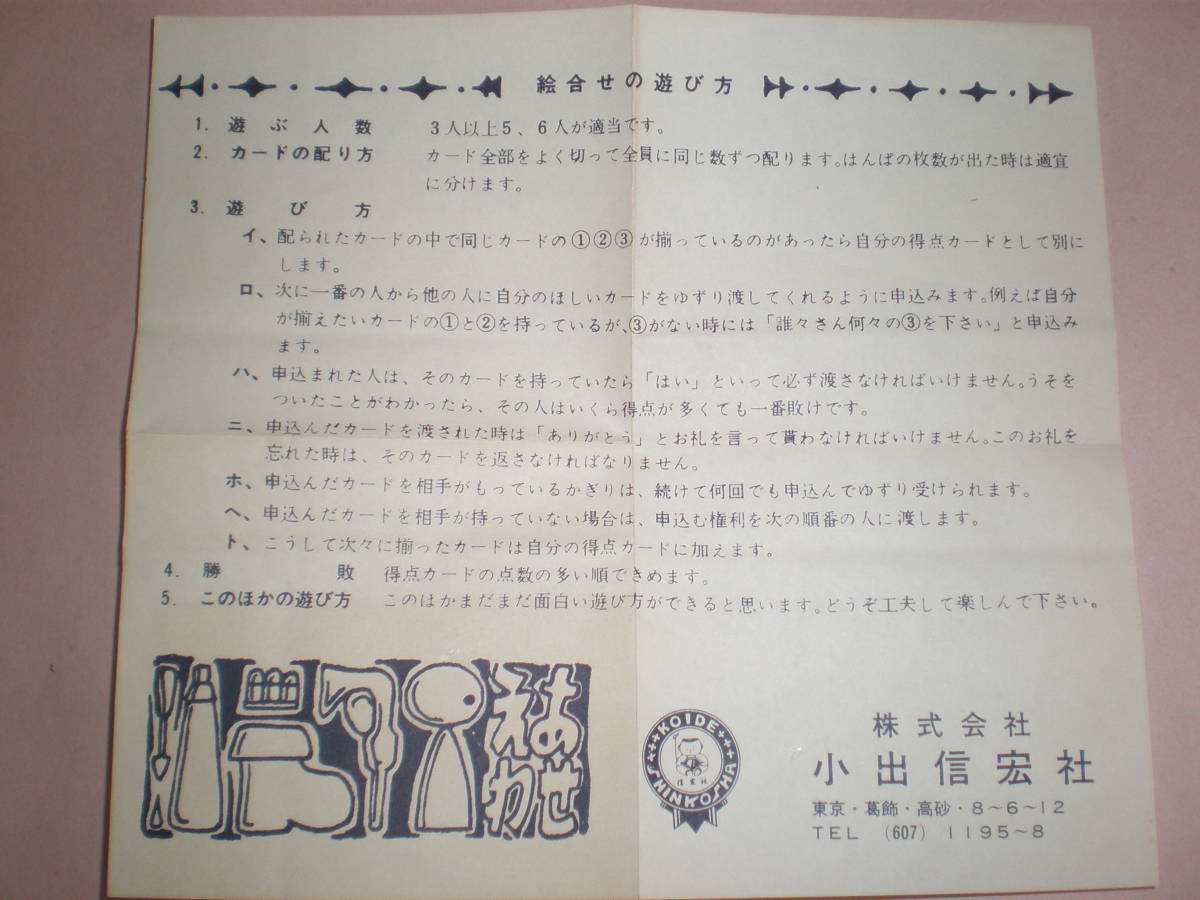 絵合せの遊び方
1. 遊ぶ人数 3人以上5、6人が適当です。
2. カードの配り方 カード全部をよく切って全員に同じ数ずつ配ります。はんぱの枚数が出た時は適宜
に分けます。
3. 遊び方
イ、配られたカードの中で同じカードの①②③が揃っているのがあったら自分の得点カードとして別に
します。
ロ、次に一番の人から他の人に自分のほしいカードをゆずり渡してくれるように申込みます。例えば自分
が揃えたいカードの①と②を持っているが、③がない時には「誰々さん何々の③を下さい」と申込み
ます。
ハ、申込まれた人は、そのカードを持っていたら「はい」といって必ず渡さなければいけません。うそを
ついたことがわかったら、その人はいくら得点が多くても一番敗けです。
ニ、申込んだカードを渡された時は「ありがとう」とお礼を言って貰わなければいけません。このお礼を
忘れた時は、そのカードを返さなければなりません。
ホ、申込んだカードを相手がもっているかぎりは、続けて何回でも申込んでゆずり受けられます。
ヘ、申込んだカードを相手が持っていない場合は、申込む権利を次の順番の人に渡します。
ト、こうして次々に揃ったカードは自分の得点カードに加えます。
4. 勝敗 得点カードの点数の多い順できめます。
5. このほかの遊び方 このほかまだまだ面白い遊び方ができると思います。どうぞ工夫して楽しんで下さい。
えあわせ
KOIDE
SHINKOSHA
信宏社
株式会社
小出信宏社
東京・葛飾・高砂・8〜6〜12
TEL (607) 1195〜8